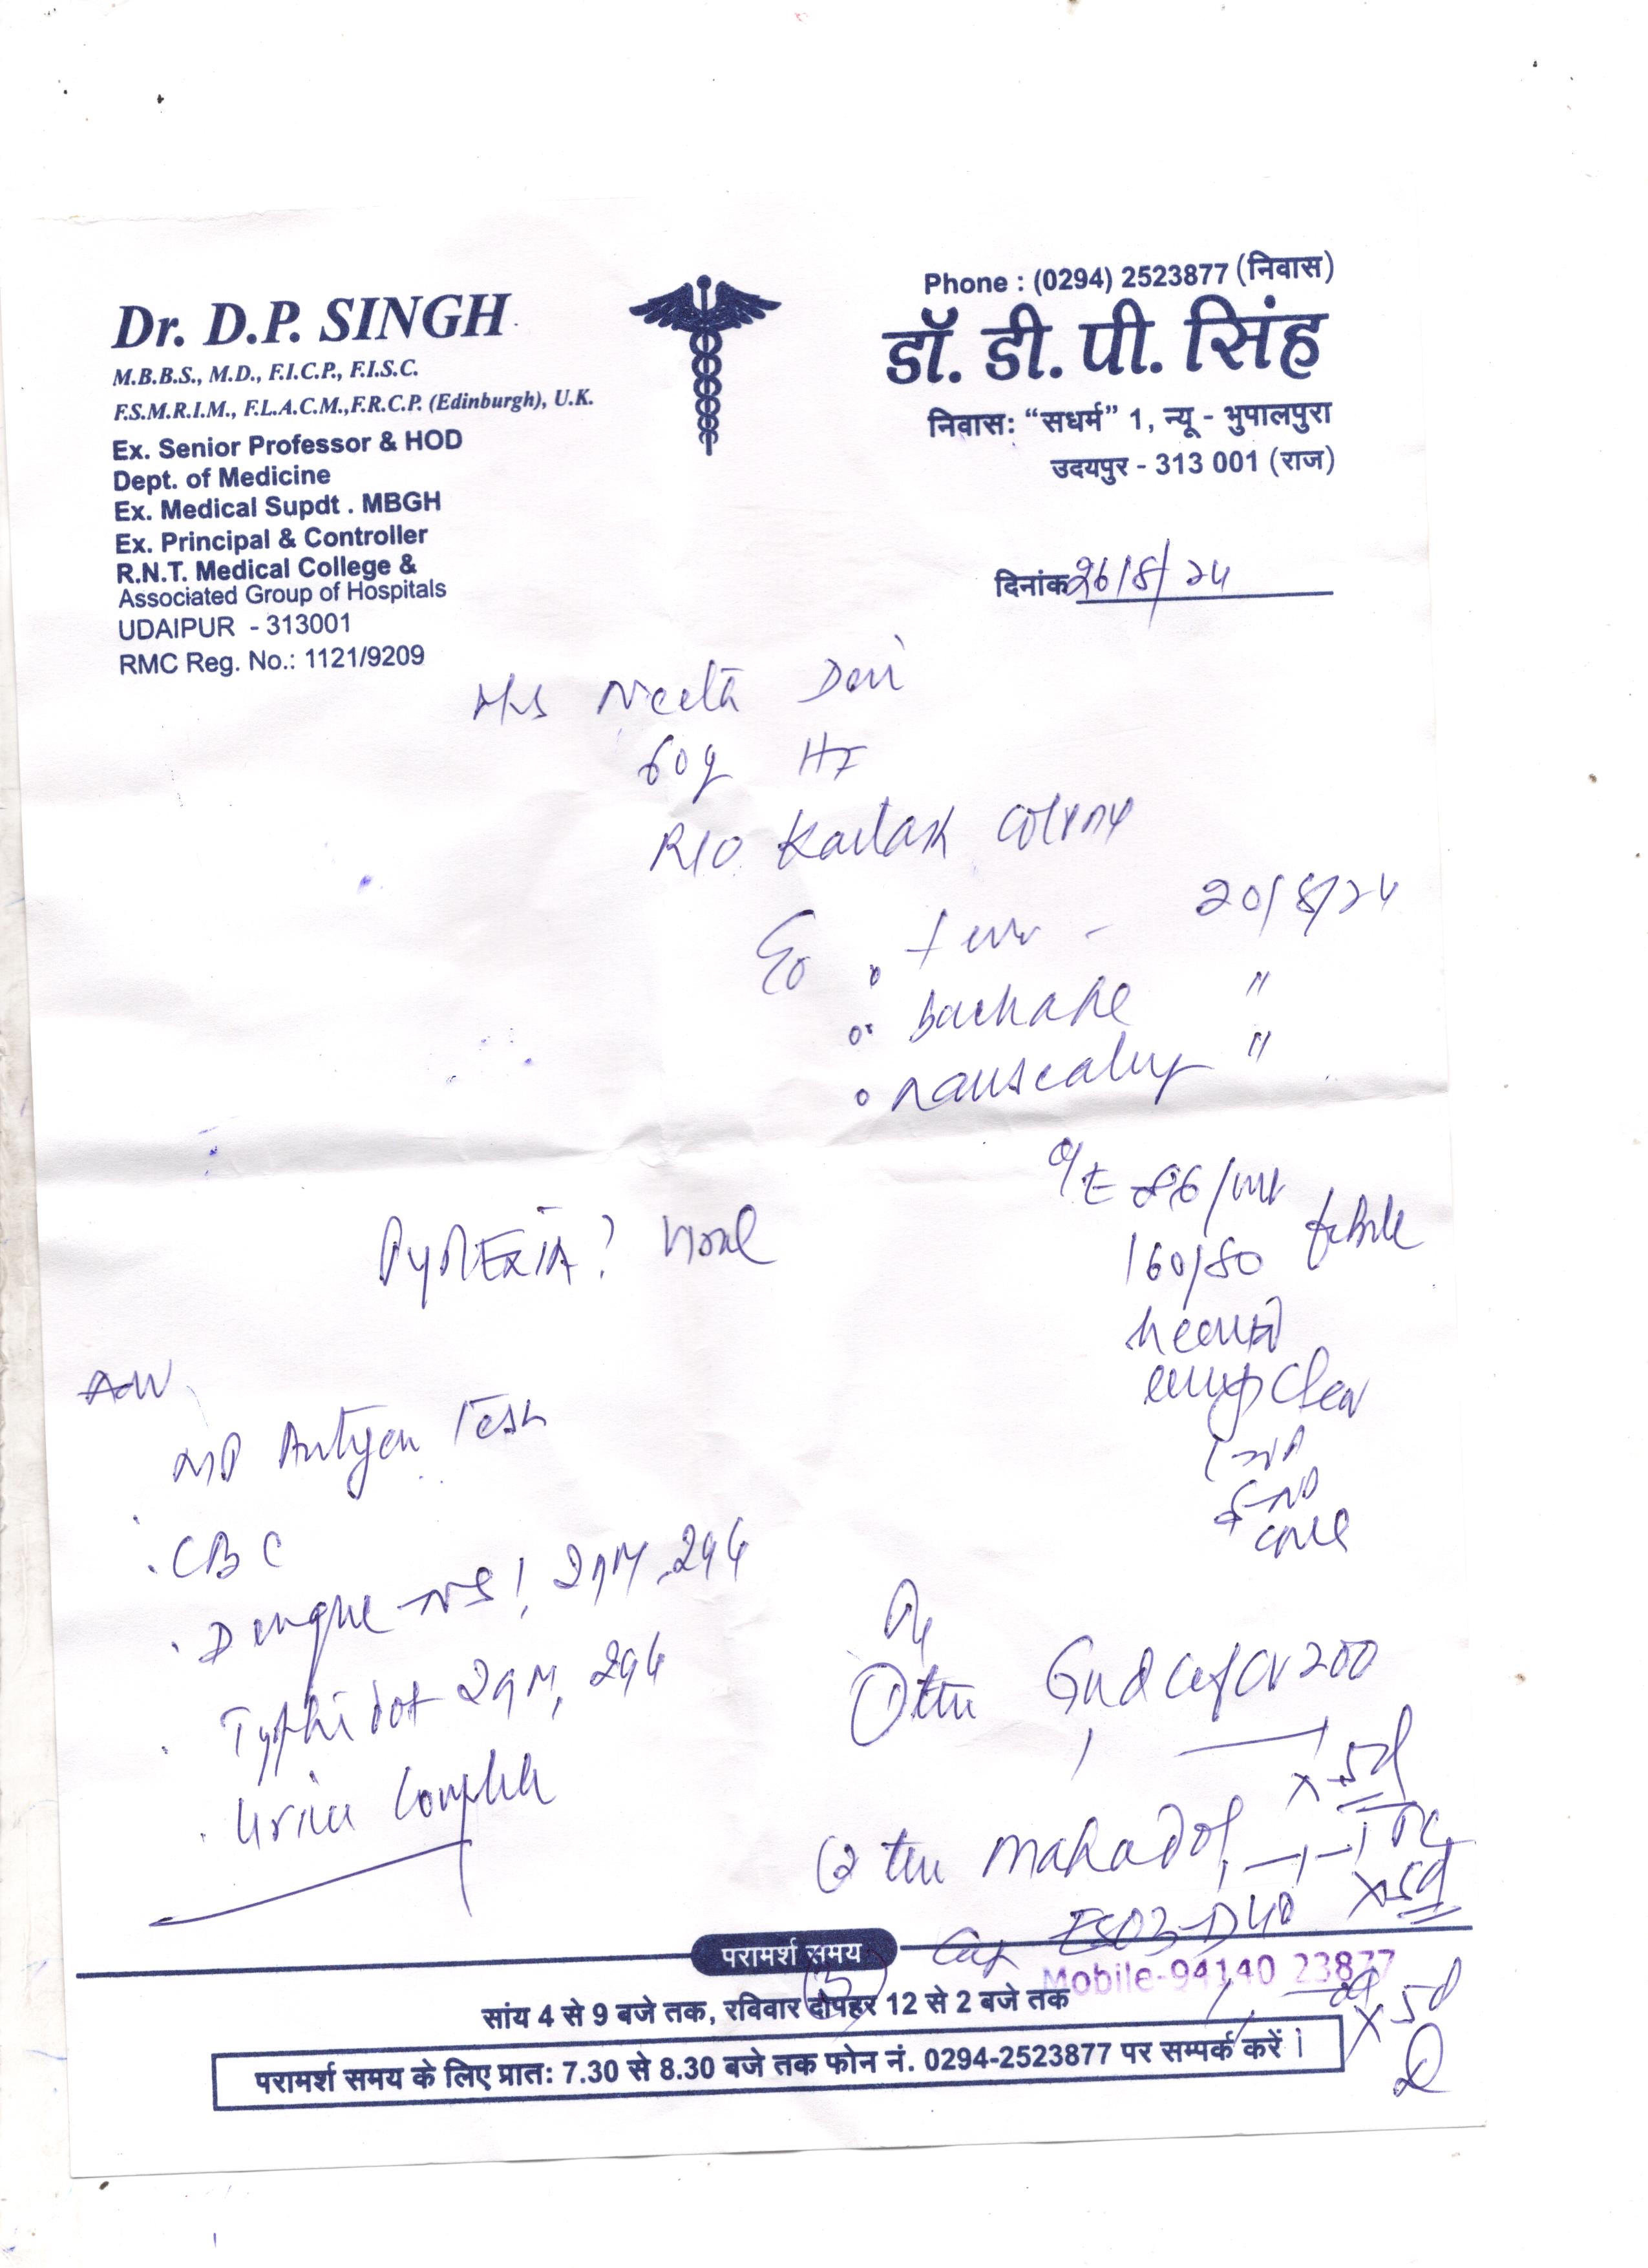 Phone : (0294) 2523877 (निवास)
Dr. D.P. SINGH
डॉ. डी. पी. सिंह
M.B.B.S., M.D., F.I.C.P., F.I.S.C.
F.S.M.R.I.M., F.L.A.C.M.,F.R.C.P. (Edinburgh), U.K.
निवास: “सधर्म” 1, न्यू - भुपालपुरा
उदयपुर - 313 001 (राज)
Ex. Senior Professor & HOD
Dept. of Medicine
Ex. Medical Supdt . MBGH
Ex. Principal & Controller
R.N.T. Medical College &
Associated Group of Hospitals
UDAIPUR - 313001
RMC Reg. No.: 1121/9209
दिनांक 26/8/24
Mrs Neeta Devi
60y
R/O Kailash Colony
fever - 20/8/24
backache "
nausea "
O/E 86/mt
160/80 febrile
PYREXIA ? Viral
clear
Adv
MP Antigen Test
CBC
Dengue NS1, IgM, IgG
Typhidot IgM, IgG
Urine Complete
Rx
① 200
x 5d
② x 5d
③ Cap D40
x 5d
परामर्श समय
Mobile-94140 23877
सांय 4 से 9 बजे तक, रविवार दोपहर 12 से 2 बजे तक
परामर्श समय के लिए प्रात: 7.30 से 8.30 बजे तक फोन नं. 0294-2523877 पर सम्पर्क करें ।